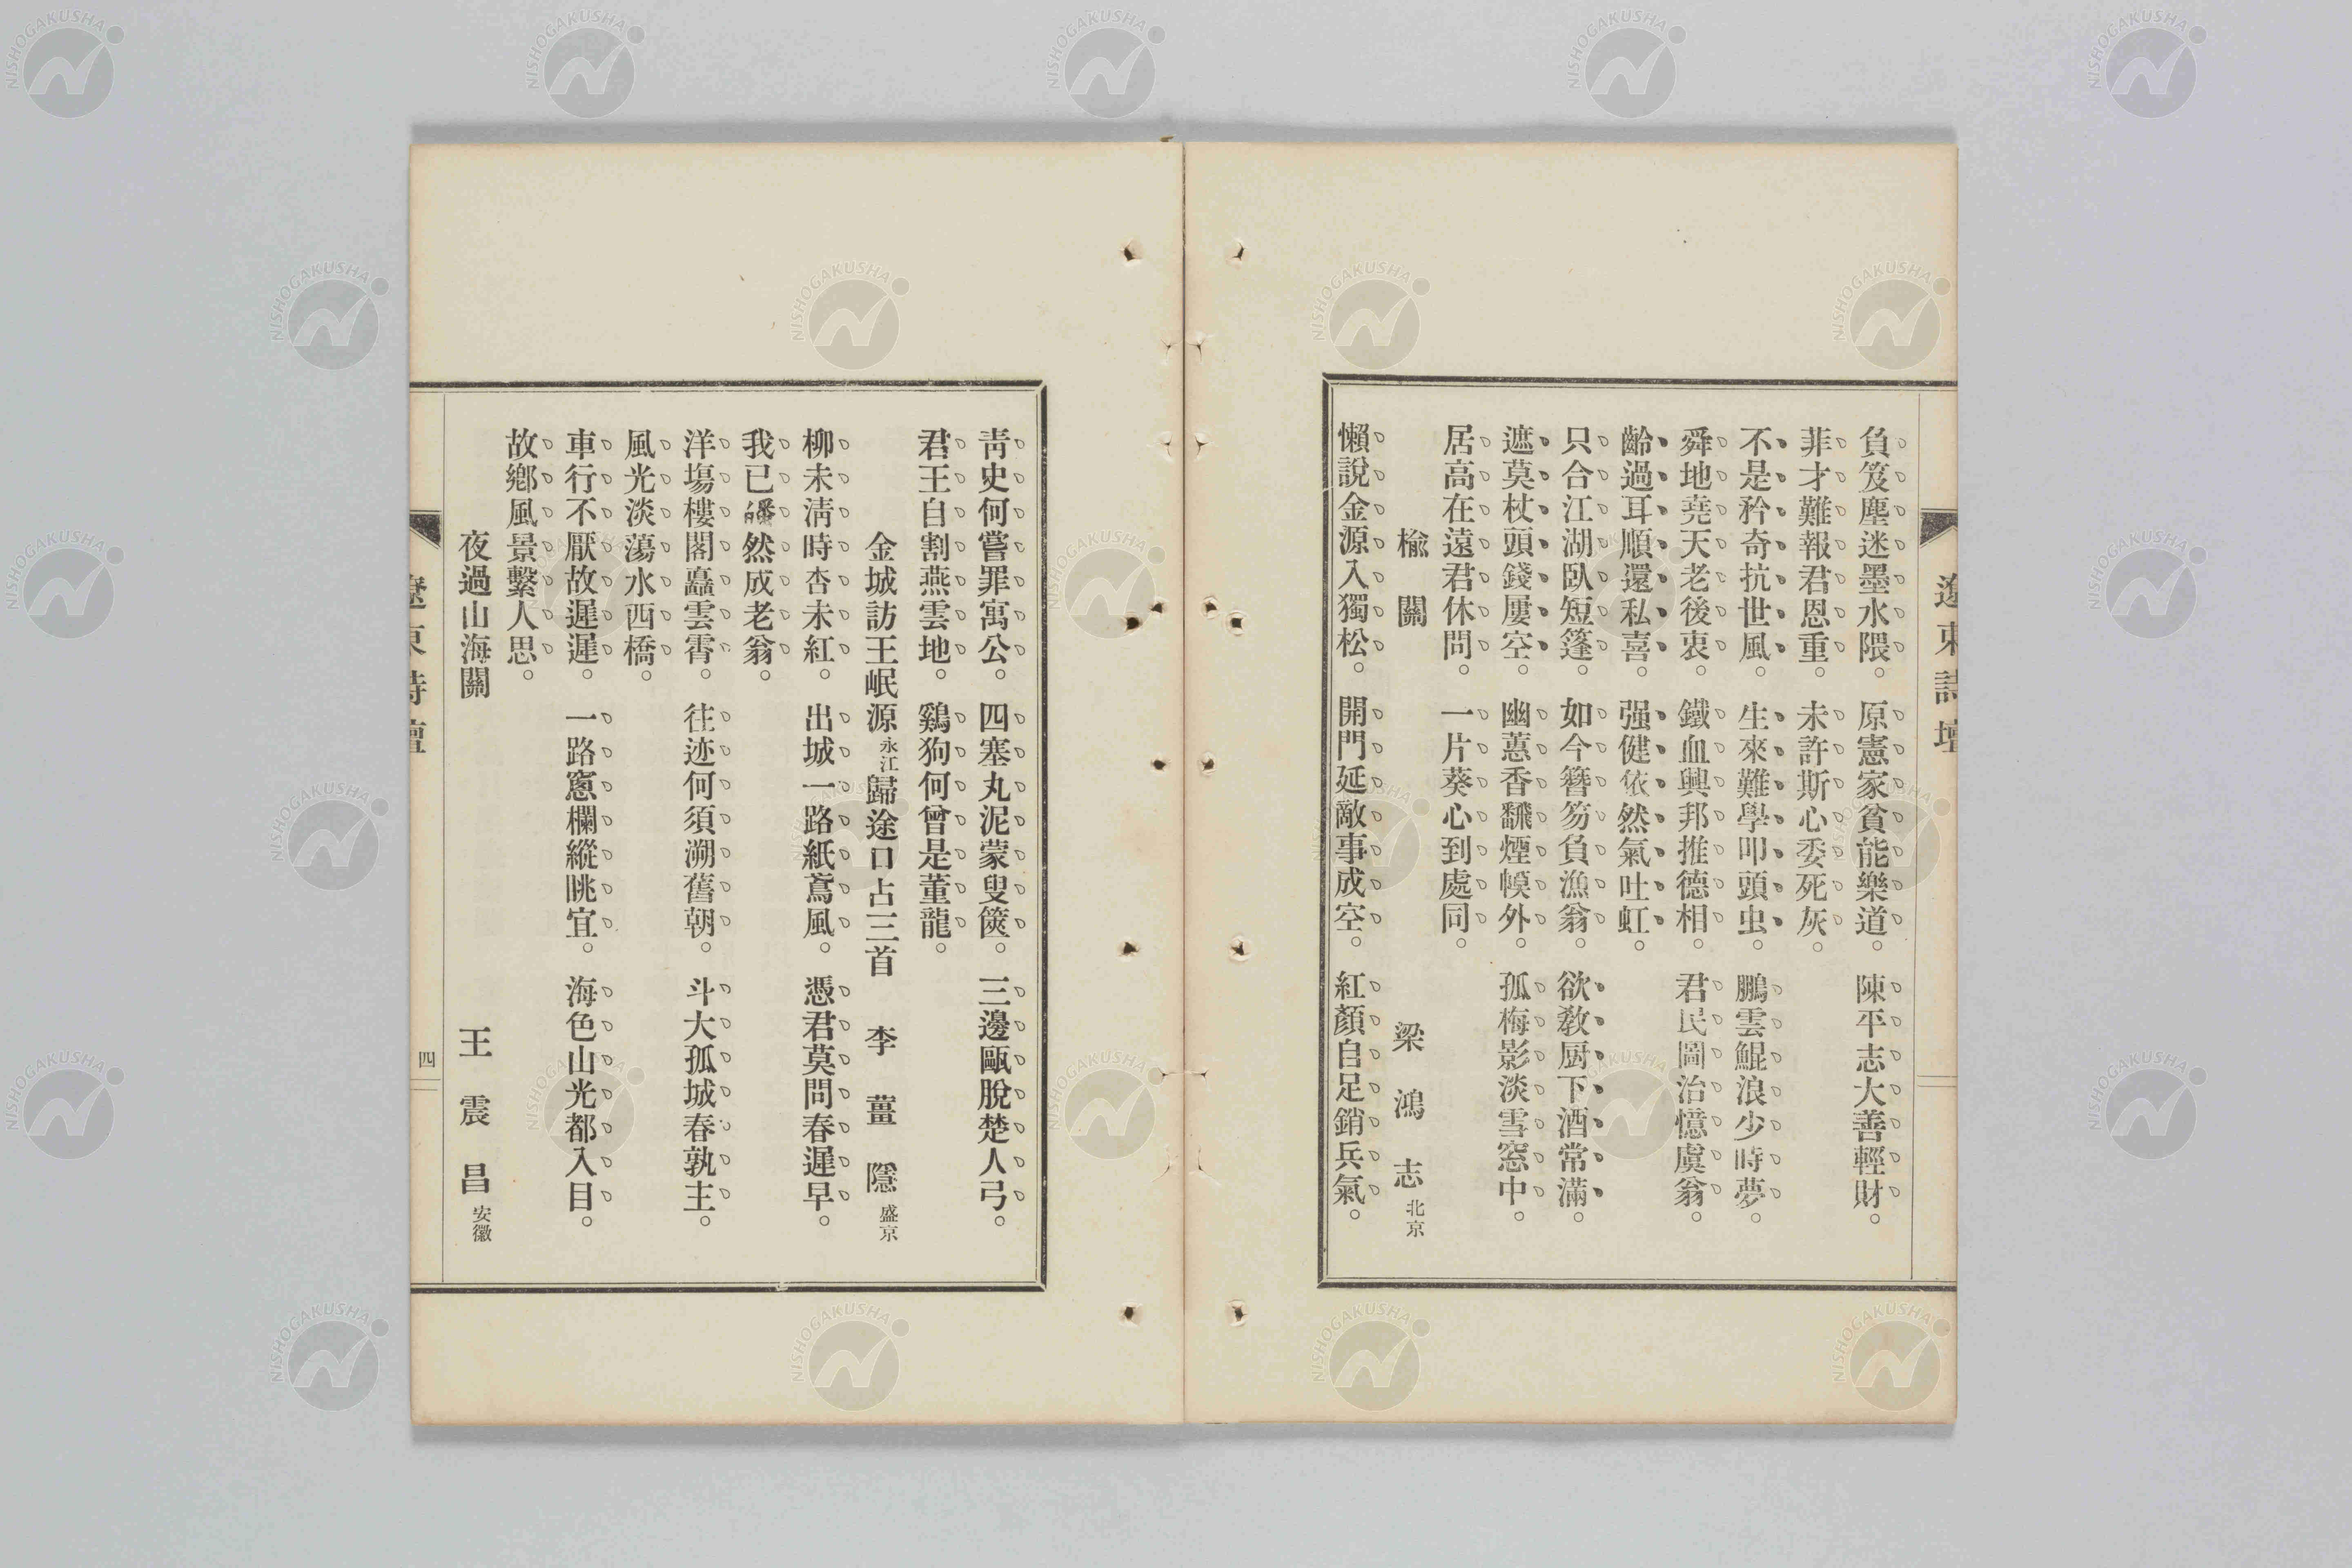 遼東詩壇
負笈塵迷墨水隈。原憲家貧能樂道。陳平志大善輕財。
菲才難報君恩重。未許斯心委死灰。
不是矜奇抗世風。生來難學叩頭虫。鵬雲鯤浪少時夢。
舜地堯天老後衷。鐵血興邦推德相。君民圖治憶虞翁。
齡過耳順還私喜。强健依然氣吐虹。
只合江湖臥短篷。如今簪笏負漁翁。欲敎厨下酒常滿。
遮莫杖頭錢屢空。幽蕙香飜煙幙外。孤梅影淡雪窓中。
居高在遠君休問。一片葵心到處同。
楡關 梁鴻志 北京
懶說金源入獨松。開門延敵事成空。紅顏自足銷兵氣。
靑史何嘗罪寓公。四塞丸泥蒙叟篋。三邊甌脫楚人弓。
君王自割燕雲地。鷄狗何曾是董龍。
金城訪王岷源永江歸途口占三首 李薑隱 盛京
柳未淸時杏未紅。出城一路紙鳶風。憑君莫問春遲早。
我已皤然成老翁。
洋塲樓閣矗雲霄。往迹何須溯舊朝。斗大孤城春孰主。
風光淡蕩水西橋。
車行不厭故遲遲。一路窻欄縱眺宜。海色山光都入目。
故鄕風景繫人思。
夜過山海關 王震昌 安徽
遼東詩壇
四
NISHOGAKUSHA